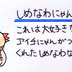 しめなわにゃん
これは大女子き
アイチにゃンが
くれた しめなわ